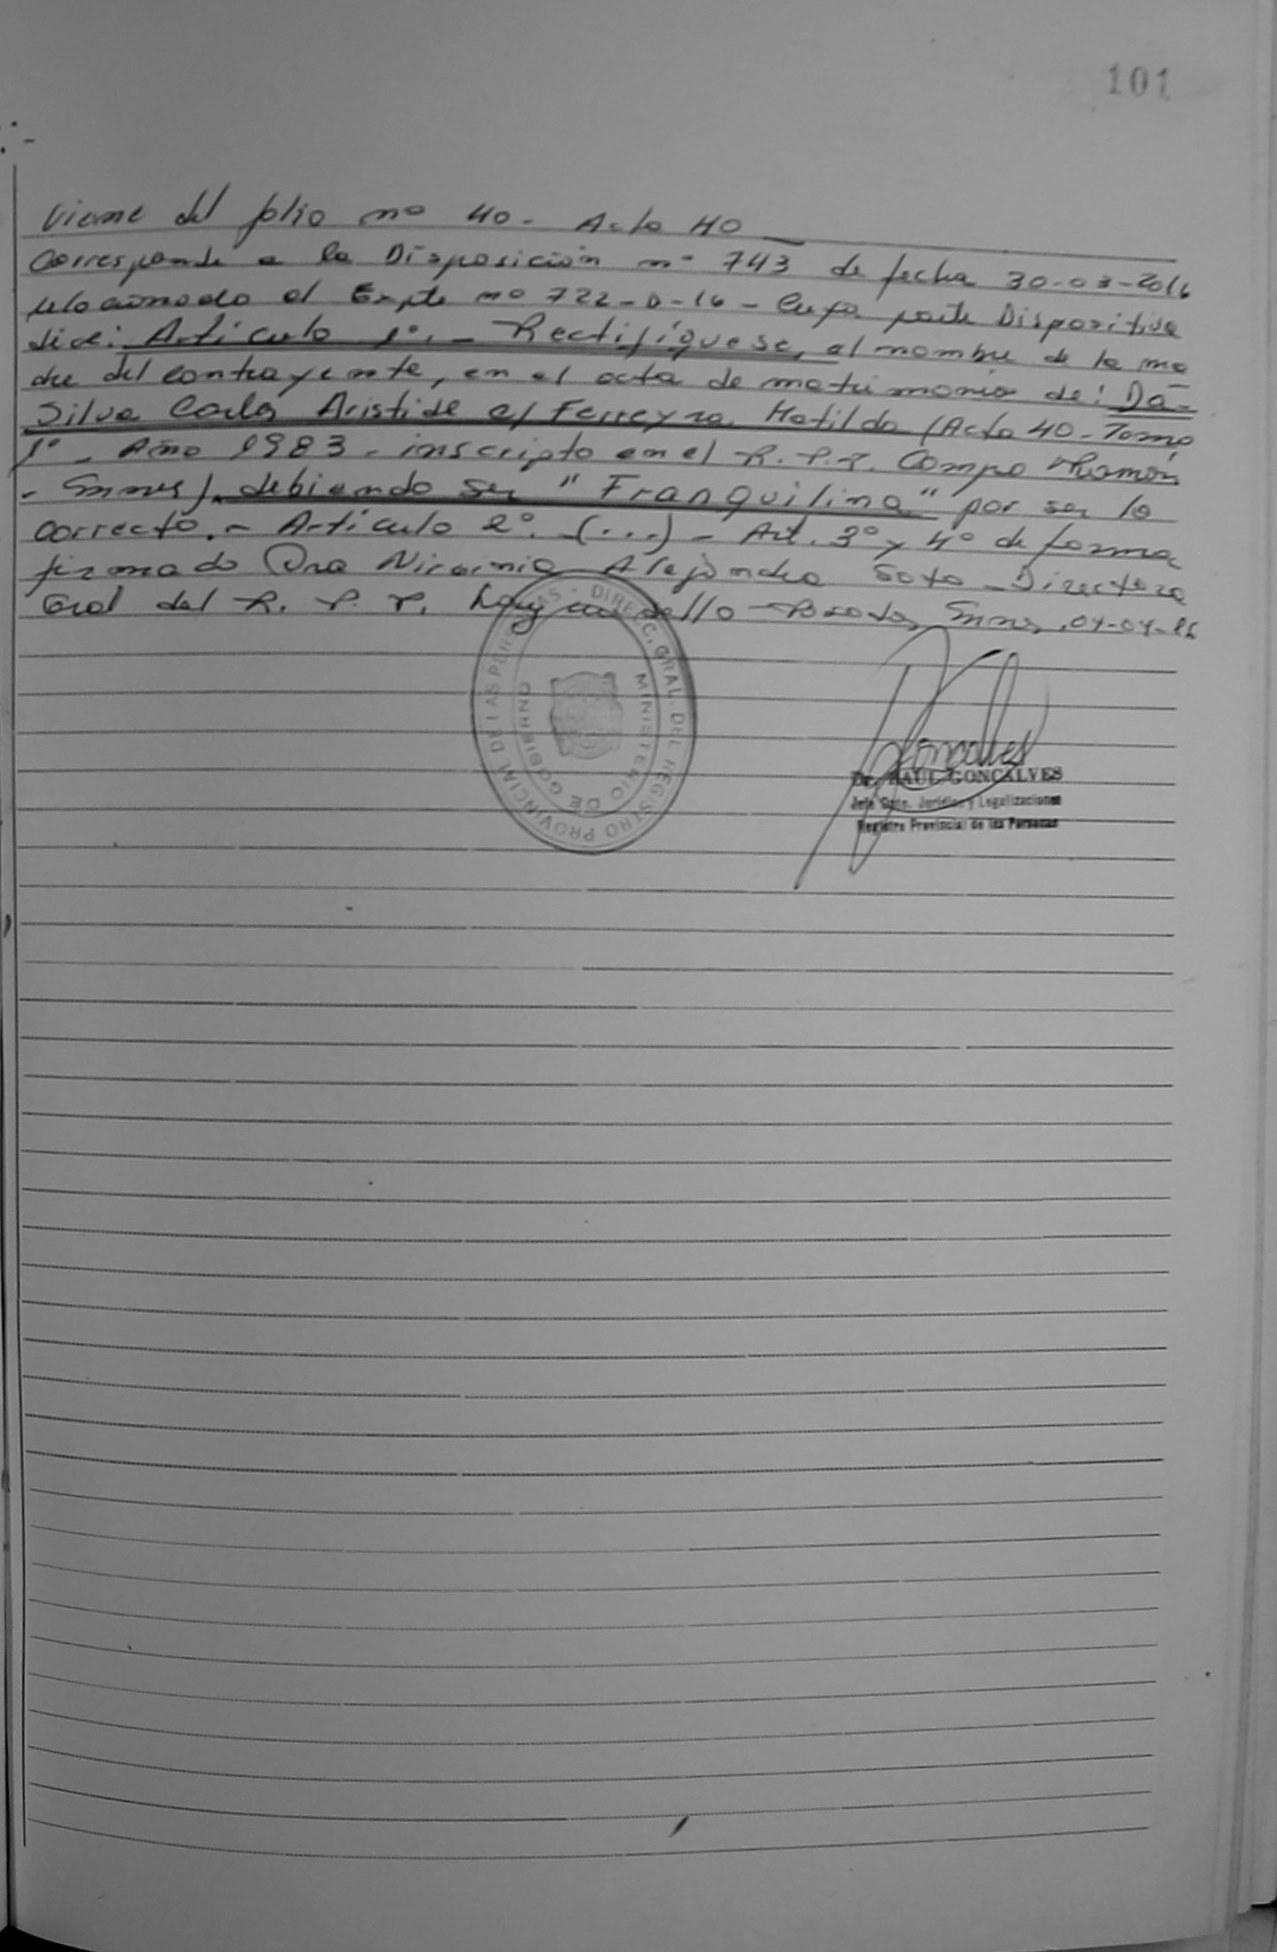 101
Viene del folio nº 40 - Acta 40
Corresponde a la Disposición nº 743 de fecha 30-03-2016
relacionado el Expte nº 722-D-16 - Cuya parte Dispositiva
dice: Artículo 1º. - Rectifíquese, el nombre de la ma
dre del contrayente, en el acta de matrimonio de: Da
Silva Carlos Aristide c/ Ferreyra Matilda (Acta 40 - Tomo
1º - Año 1983 - inscripto en el R.P.P. Campo Ramón
- Mnes), debiendo ser "Franquilina" por ser lo
correcto. - Artículo 2º. (...) - Art. 3º y 4º de forma
firmado Dra Alejandra Soto - Directora
Gral del R.P.P. Hay un sello - Posadas, Mnes,
DIRECC. GRAL. DEL REGISTRO PROVINCIAL DE LAS PERSONAS
MINISTERIO DE GOBIERNO
Dr. RAUL GONCALVES
Jefe Dpto. Jurídico y Legalizaciones
Registro Provincial de las Personas